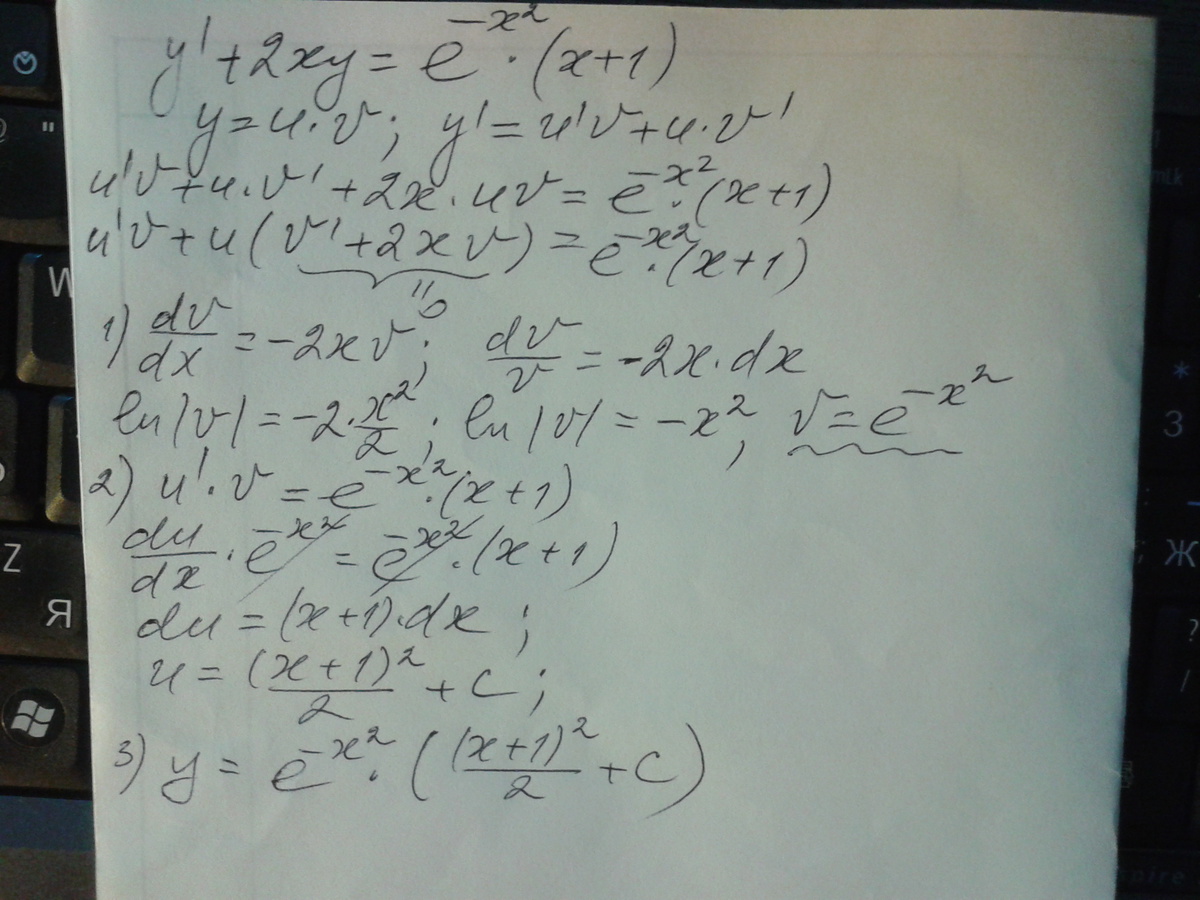 y' + 2xy = e^{-x^2} · (x+1)
y = u·v; y' = u'v + u·v'
u'v + u·v' + 2x·uv = e^{-x^2}·(x+1)
u'v + u(v' + 2xv) = e^{-x^2}·(x+1)
"0
1) dv/dx = -2xv; dv/v = -2x·dx
ln|v| = -2·x^2/2; ln|v| = -x^2, v = e^{-x^2}
2) u'·v = e^{-x^2}·(x+1)
du/dx · e^{-x^2} = e^{-x^2}·(x+1)
du = (x+1)·dx;
u = (x+1)^2/2 + C;
3) y = e^{-x^2}·((x+1)^2/2 + C)
W
Z
Я
"
mLk
*
3
Ж
?
/
spire